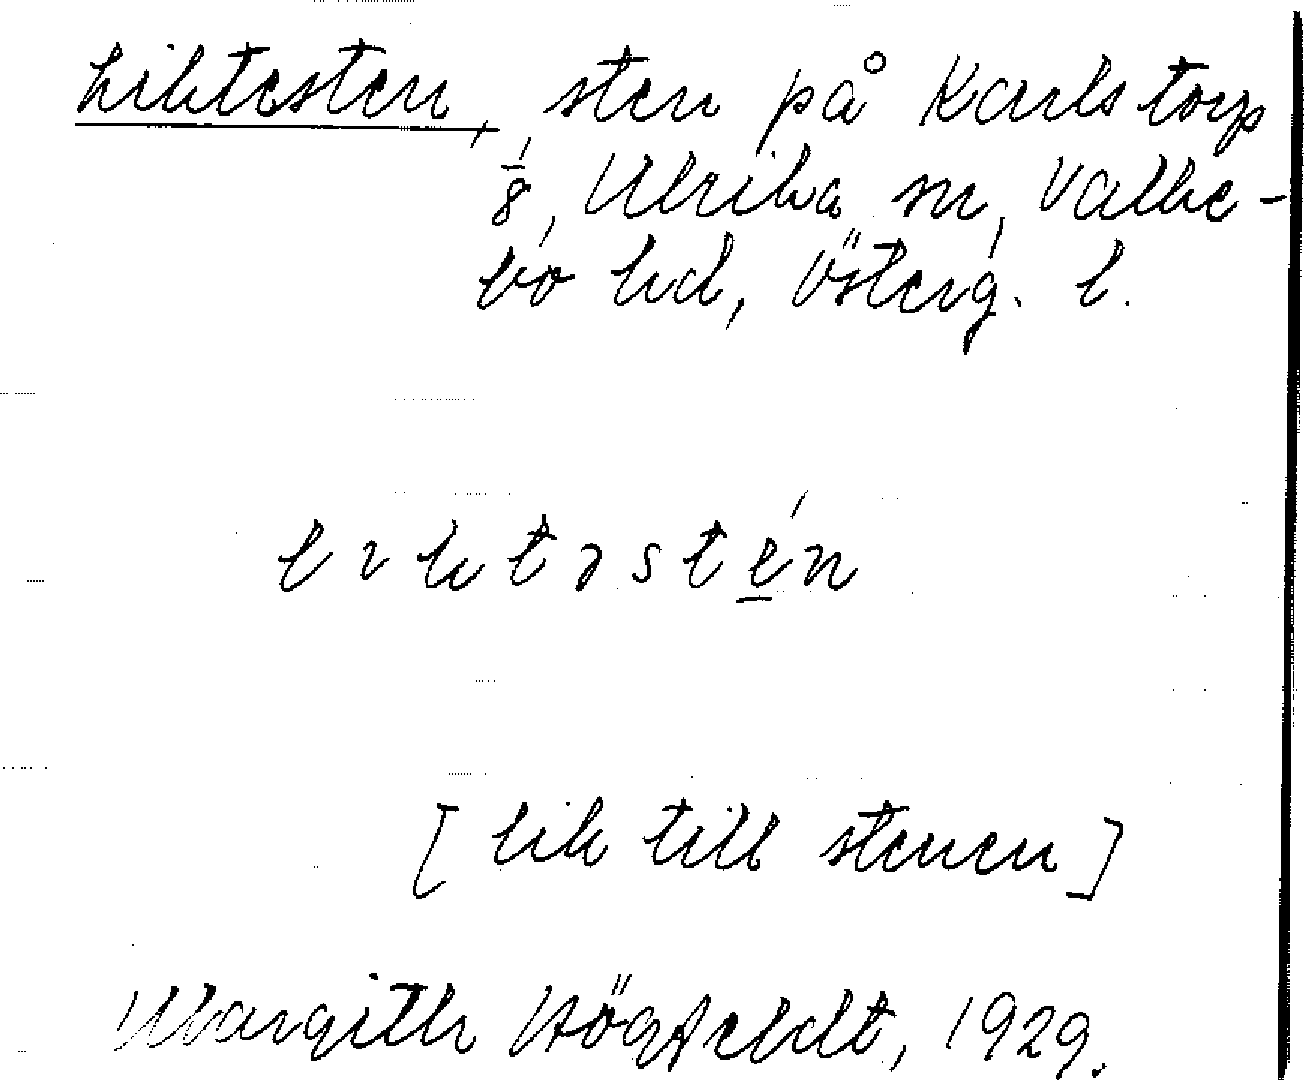 Liktesten, sten på Karlstorp
1/8, Ulrika sn, Valke-
bo hd, Österg. l.
lıktəstén
[lik till stenen]
Margith Högfeldt, 1929.